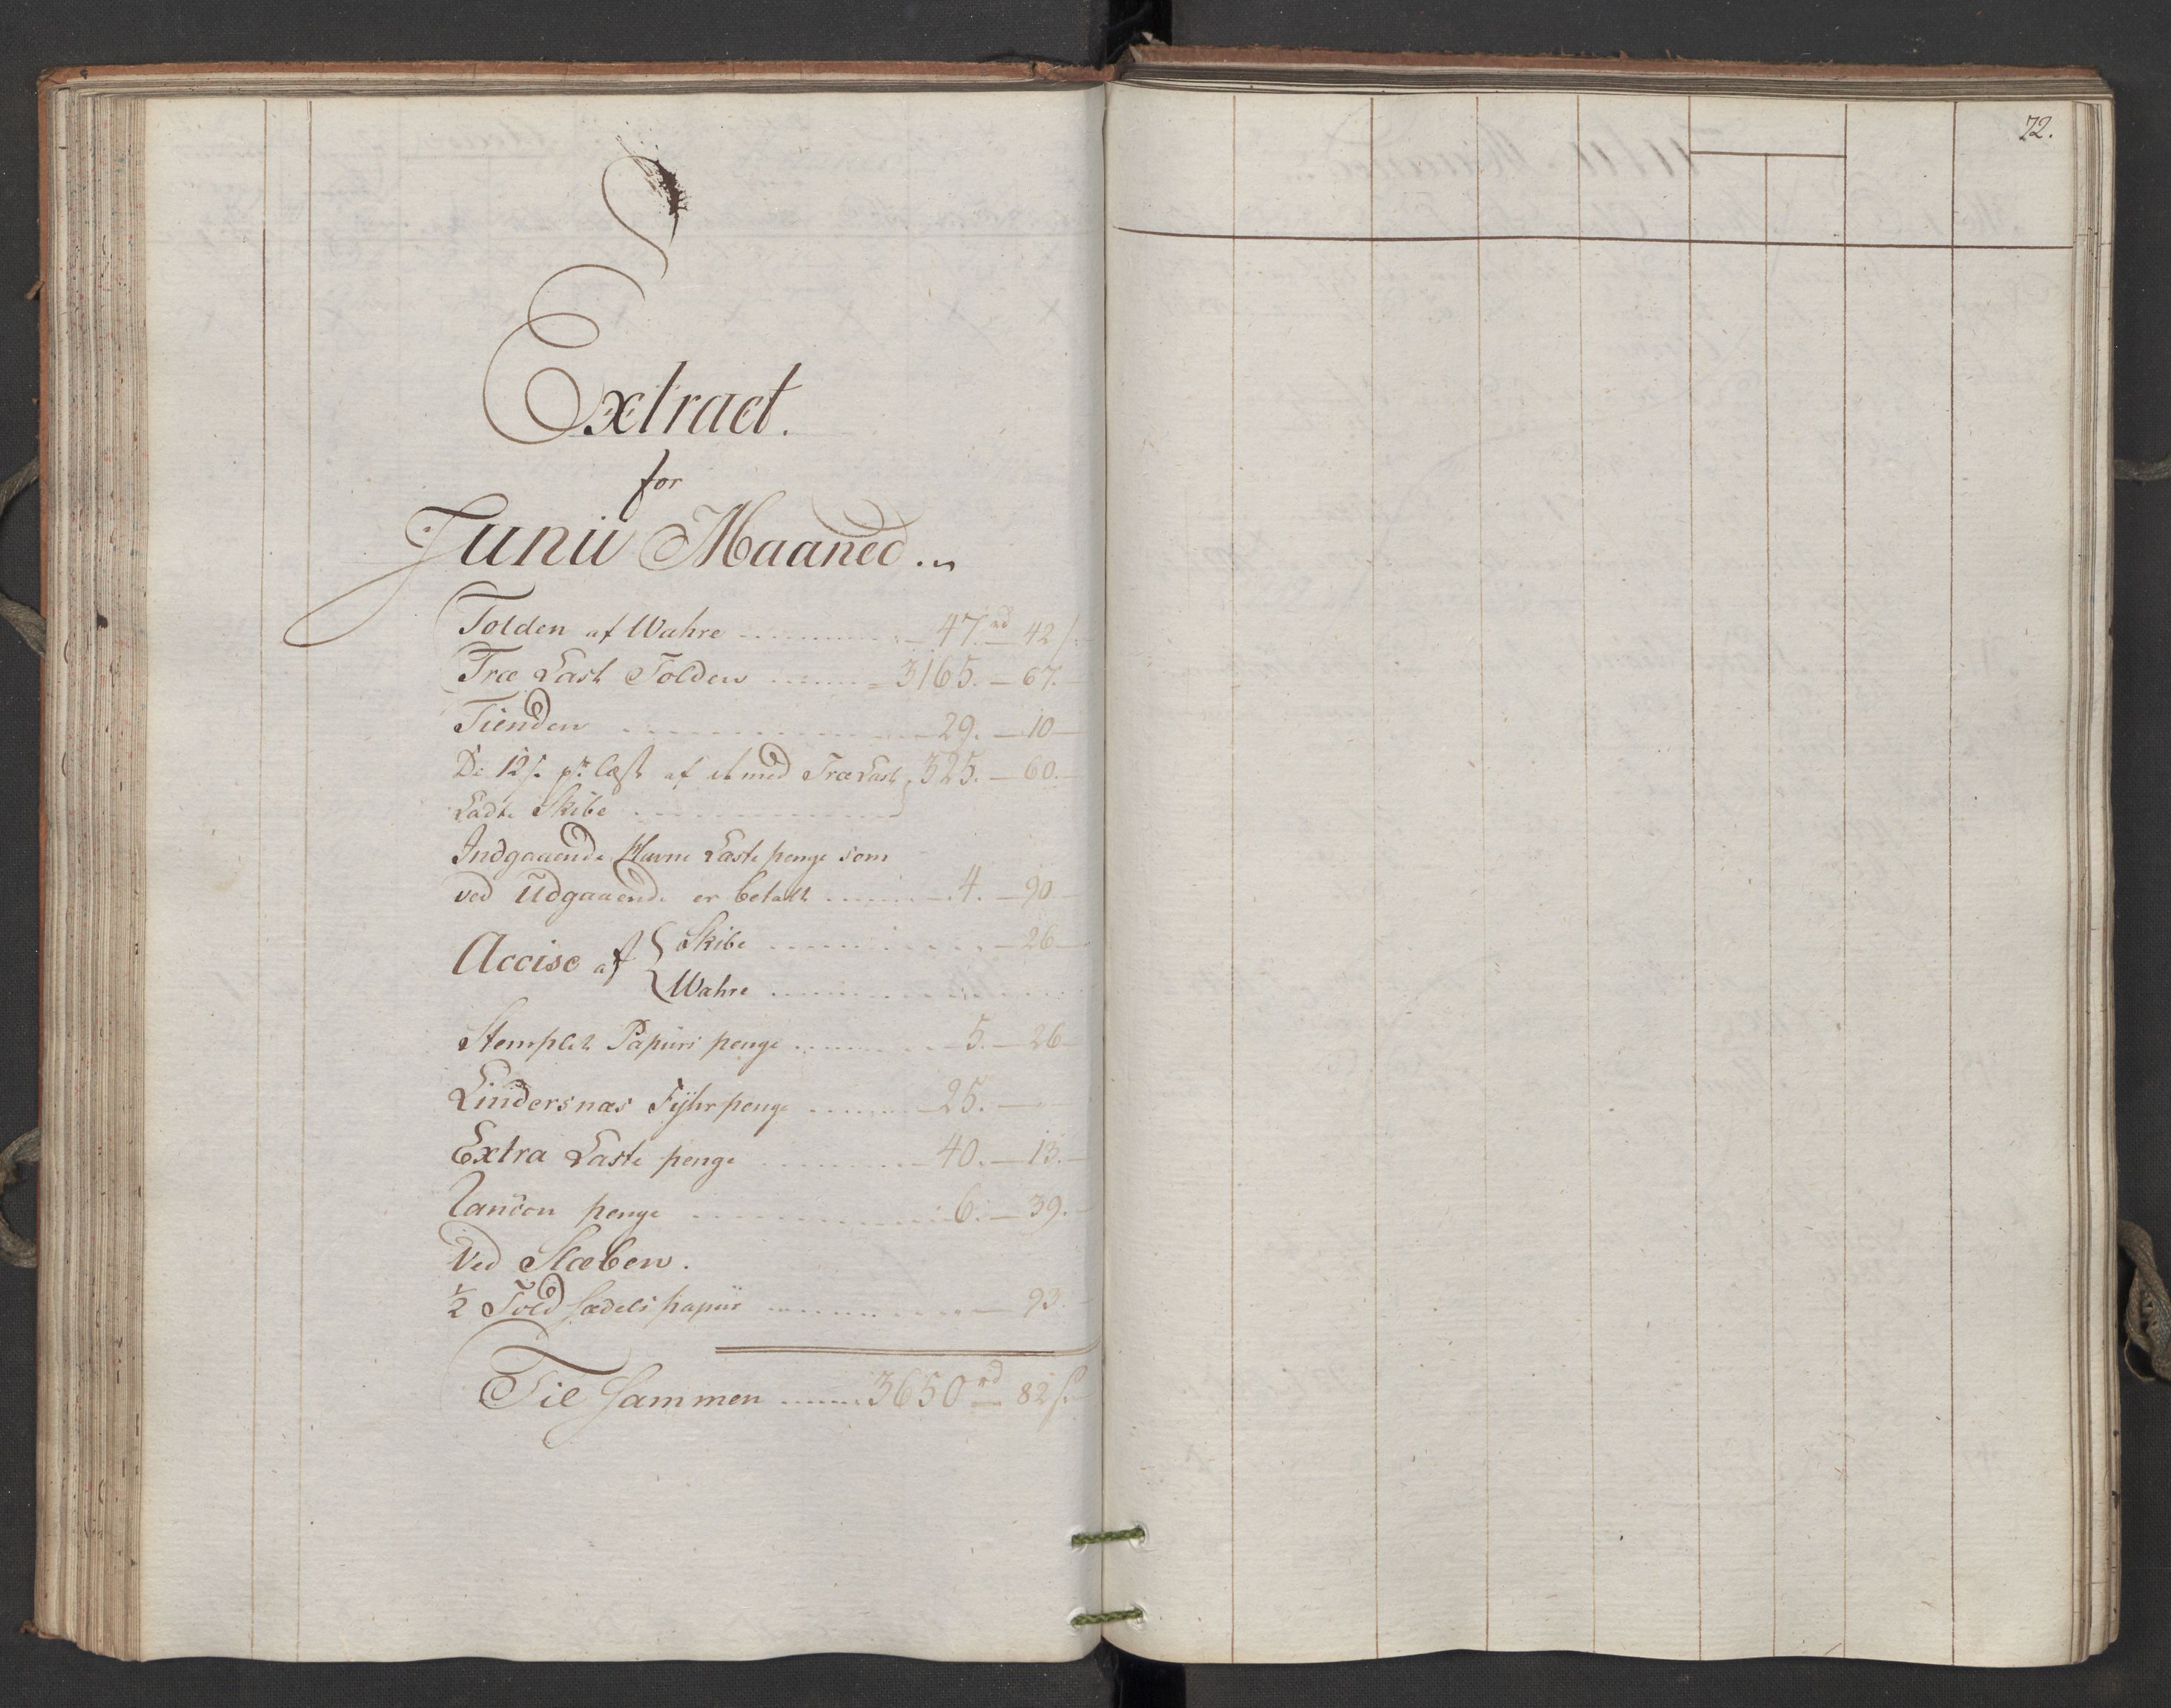 72.
Extract.
for
Junii Maaned...
Tolden af Wahre ............ 47.rd 42 s.
Træ Last Tolden ......... 3165. — 67. —
Tienden .................. 29. — 10 —
De 12 s. pr læst af de med Træ Last } 325. — 60. —
Ladte Skibe ..................
Indgaaende Havne Laste penge som
ved Udgaaende er betalt ......... 4. — 90 —
Accise af { Skibe ............ — 26 —
{ Wahre ............
Stemplet Papiirs penge ......... 5. — 26 —
Lindersnæs Fyhr penge ......... 25. —
Extra Laste penge ......... 40. — 13. —
Rancon penge ............ 6. — 39. —
Ved Slæben.
1/2 Told Sædels papiir ............ — 93. —
Til Sammen ....... 3650 rd 82 s.